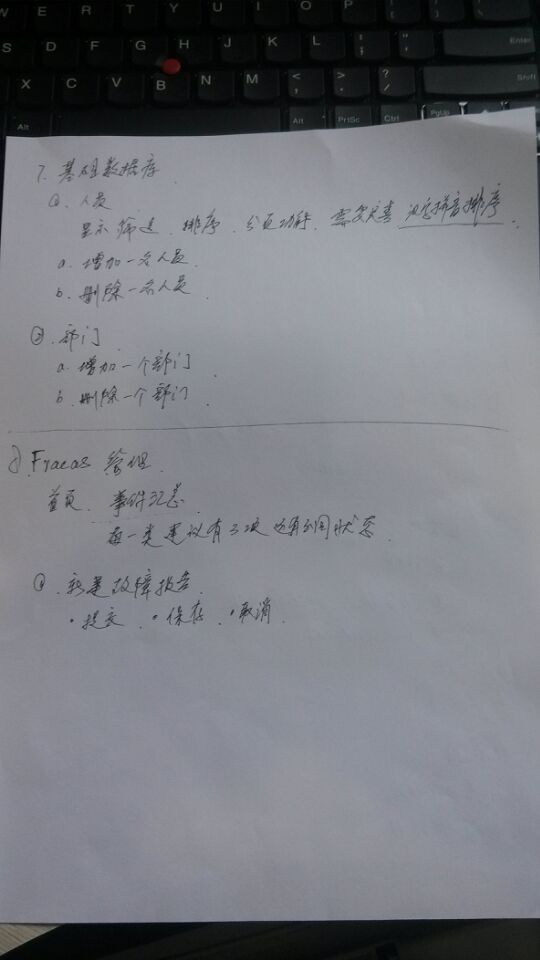 W E R T Y U I O P { }
S D F G H J K L : " Enter
X C V B N M < , > . ? / Shift
Alt Alt PrtSc Ctrl PgUp
7. 基础数据库
①. 人员
显示 筛选、排序、分页功能. 需要完善 汉字拼音排序.
a. 增加一名人员.
b. 删除一名人员.
②. 部门
a. 增加一个部门
b. 删除一个部门.
8. Fracas 管理.
首页. 事件汇总.
每一类建议有三项 状态.
①. 新建故障报告.
·提交. ·保存. ·取消.